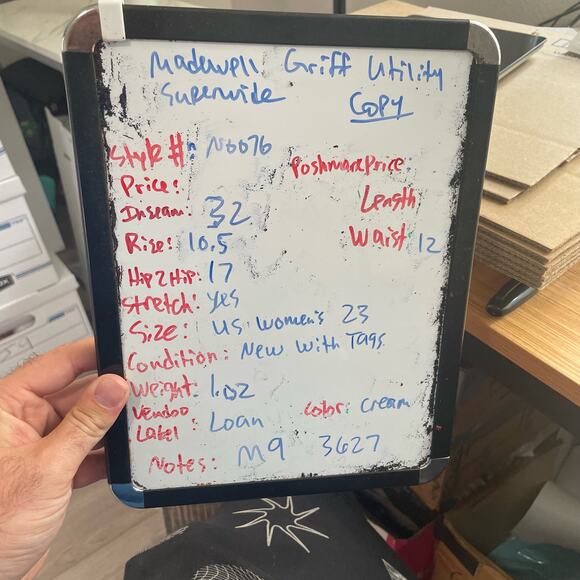 Madewell Griff Utility
Superwide COPY
Style #: N6076
Poshmark Price:
Price:
Length
Inseam: 32
Waist: 12
Rise: 10.5
Hip 2 Hip: 17
Stretch: yes
Size: US Women's 23
Condition: New With Tags
Weight: 1.02
Color: Cream
Vendoo
Label: Loan
Notes: M9 3627